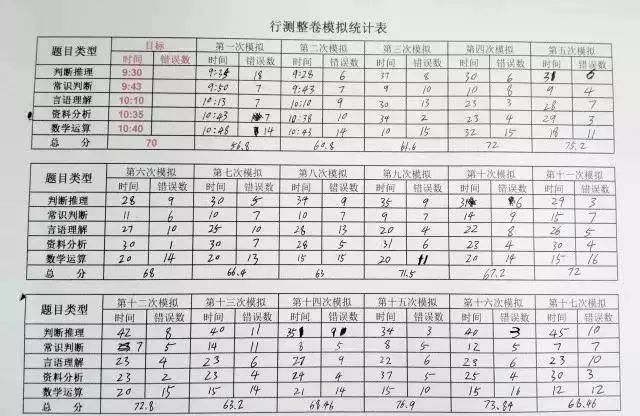 行测整卷模拟统计表
题目类型 目标 第一次模拟 第二次模拟 第三次模拟 第四次模拟 第五次模拟
时间 错误数 时间 错误数 时间 错误数 时间 错误数 时间 错误数 时间 错误数
判断推理 9:30 9:35 18 9:28 6 37 8 30 6 31
常识判断 9:43 9:50 7 9:43 7 9 10 10 8 9 4
言语理解 10:10 10:13 7 10:10 9 30 13 23 3 28 7
资料分析 10:35 10:43 7 10:38 10 34 2 23 4 29 3
数学运算 10:40 10:48 14 10:43 14 10 15 32 15 18 11
总 分 70 56.8 60.8 61.6 72 75.2
题目类型 第六次模拟 第七次模拟 第八次模拟 第九次模拟 第十次模拟 第十一次模拟
时间 错误数 时间 错误数 时间 错误数 时间 错误数 时间 错误数 时间 错误数
判断推理 28 9 30 5 34 9 35 9 6 29 3
常识判断 11 6 10 7 10 7 9 7 14 9 15 7
言语理解 27 10 25 10 28 13 20 4 22 8 26 5
资料分析 30 1 30 7 28 5 31 6 23 4 30 4
数学运算 20 14 20 13 15 15 20 11 20 14 15 16
总 分 68 66.4 63 71.5 67.2 72
题目类型 第十二次模拟 第十三次模拟 第十四次模拟 第十五次模拟 第十六次模拟 第十七次模拟
时间 错误数 时间 错误数 时间 错误数 时间 错误数 时间 错误数 时间 错误数
判断推理 42 8 40 11 35 9 34 3 40 3 45 10
常识判断 7 5 14 11 3 5 8 5 12 5 7 7
言语理解 23 4 23 6 27 9 22 6 28 6 23 10
资料分析 23 2 23 4 24 4 37 5 25 4 30 3
数学运算 20 15 15 14 21 14 15 15 15 16 12 12
总 分 72.8 63.2 68.46 76.9 73.84 68.46